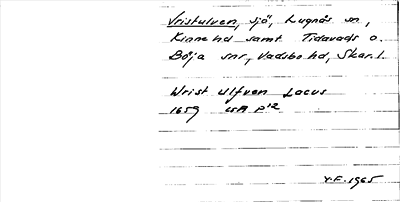 Vristulven, sjö, Lugnås sn,
Kinne hd samt Tidavads o.
Böja snr, Vadsbo hd, Skar. l.
Wrist Ulfven Locus
1659 LSA P12
Y.F. 1965